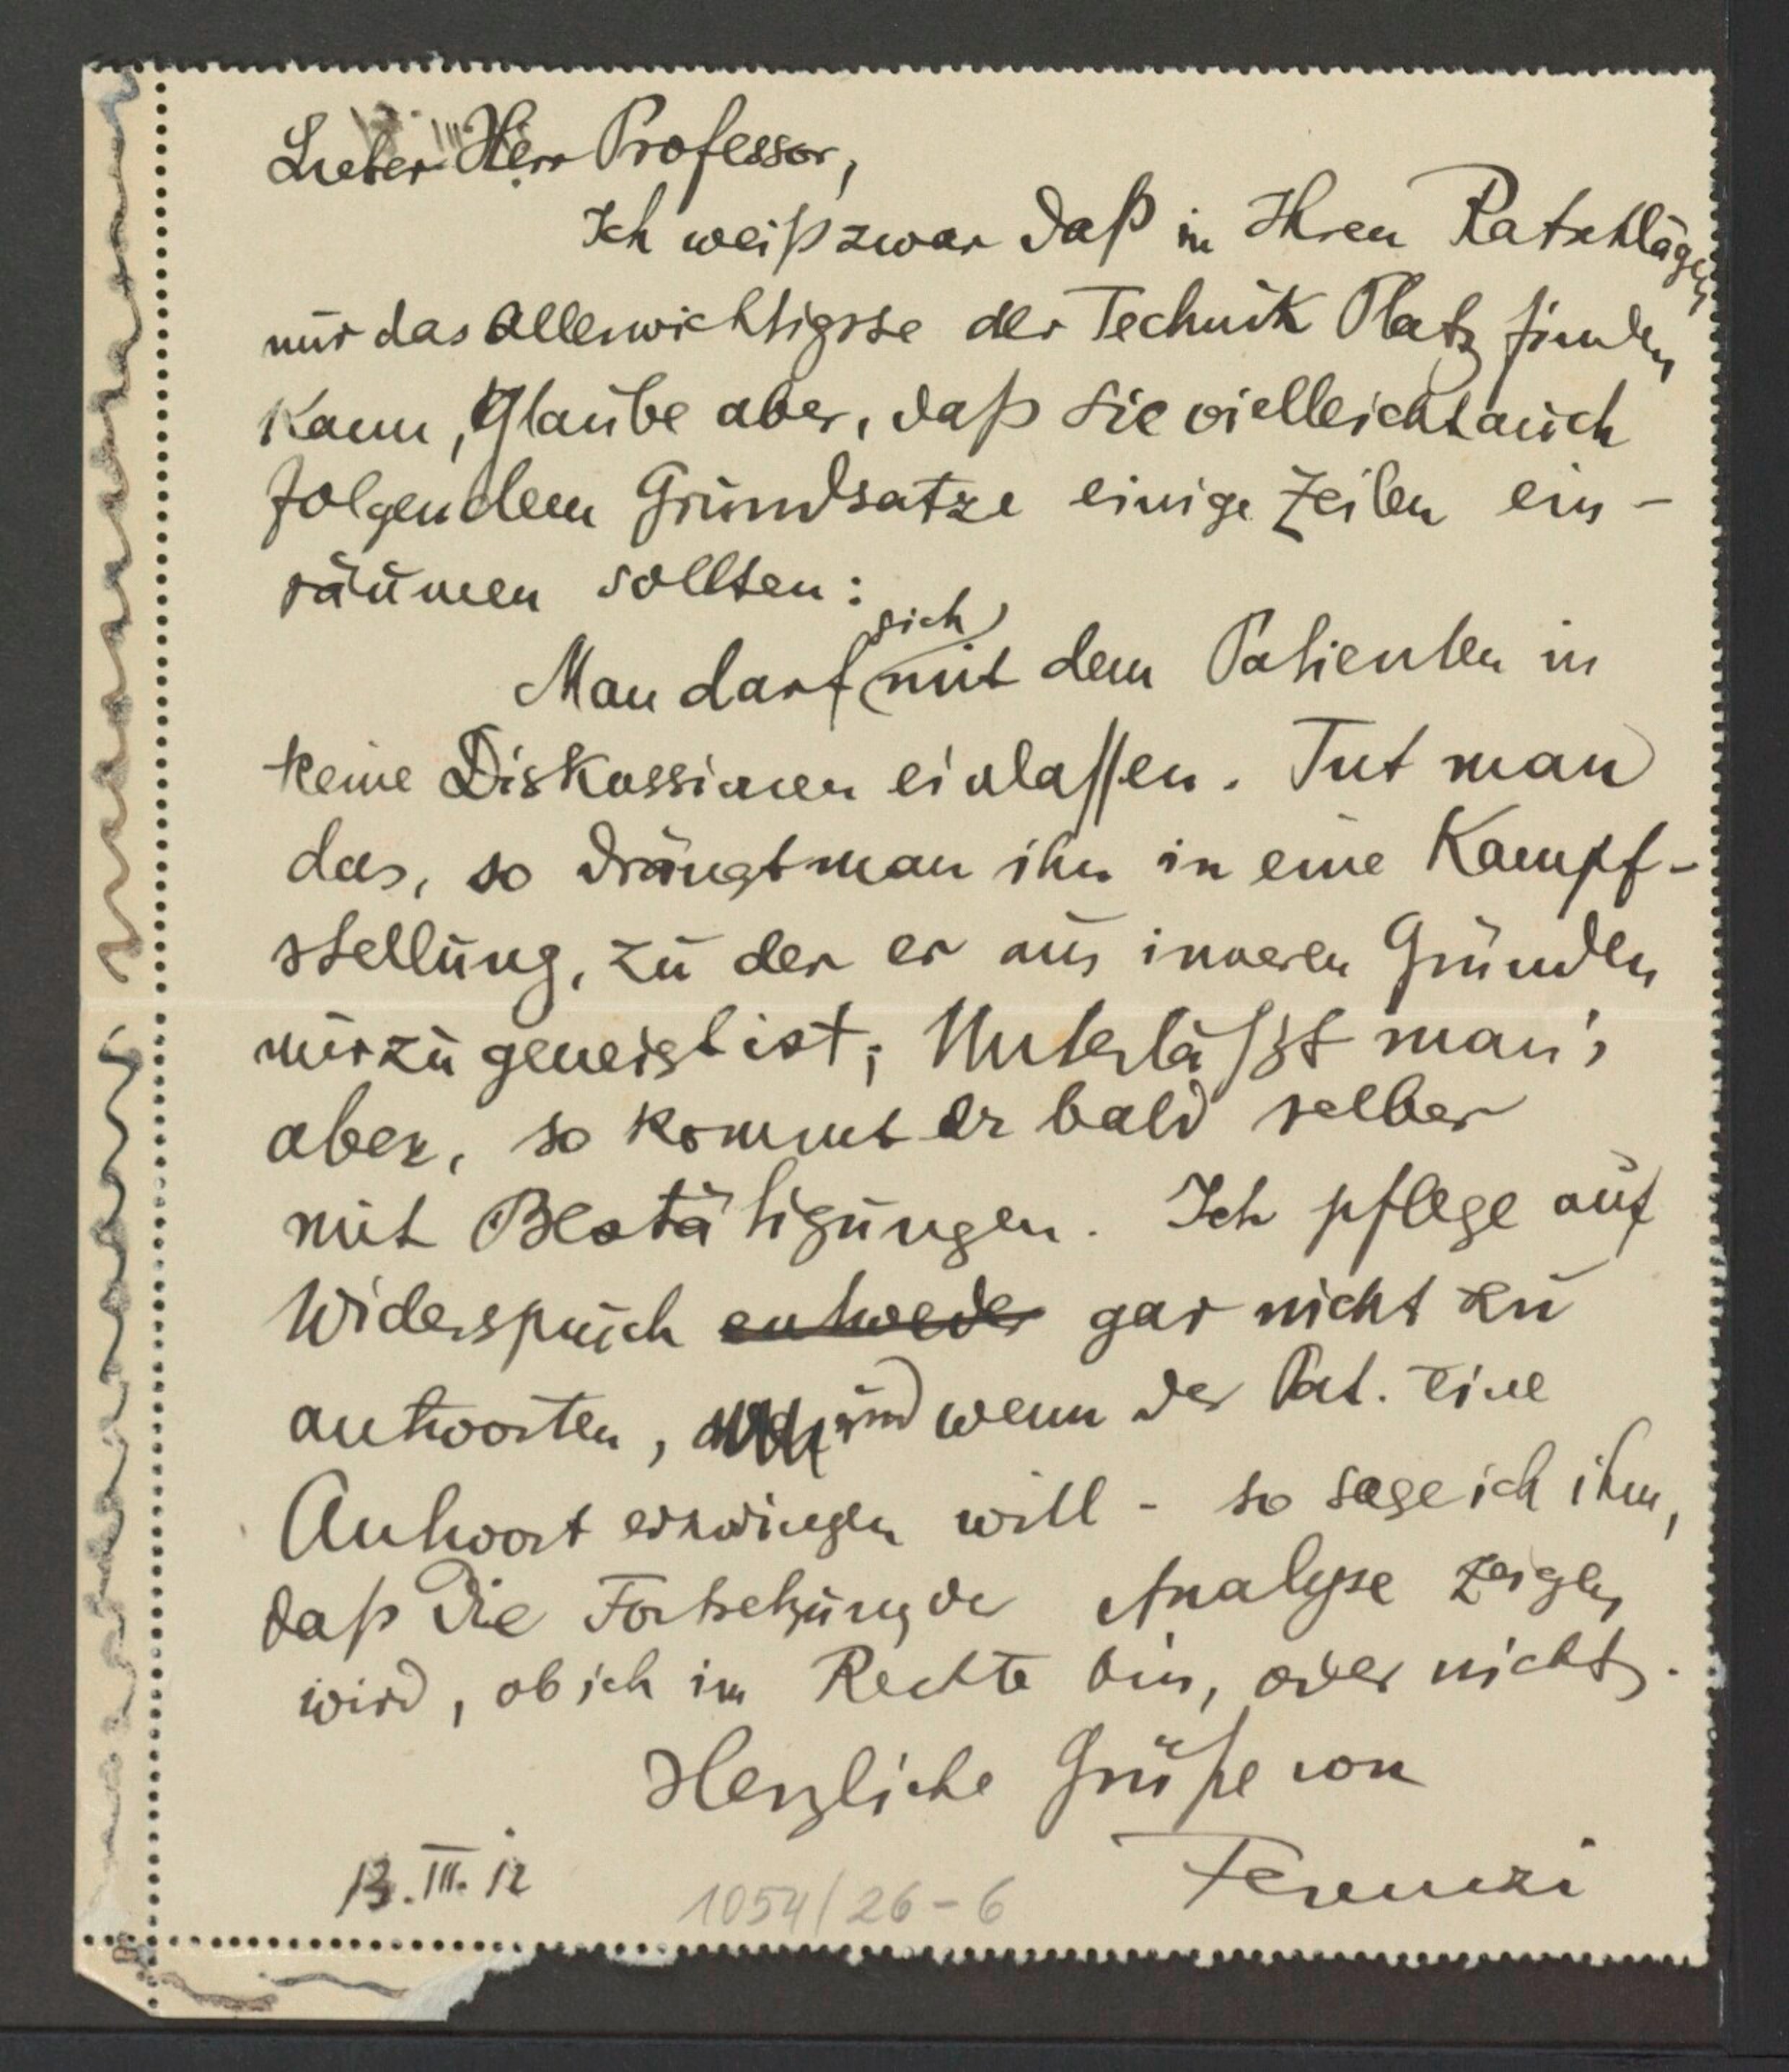 Lieber Herr Professor,
Ich weiß zwar daß in Ihren Ratschlägen
nur das Allerwichtigste der Technik Platz finden
kann, glaube aber, daß Sie vielleicht auch
folgendem Grundsatze einige Zeilen ein-
räumen sollten:
Man darf sich mit dem Patienten in
keine Diskussionen einlassen. Tut man
das, so drängt man ihn in eine Kampf-
stellung, zu der er aus inneren Gründen
nur zu geneigt ist; Unterläßt man's
aber, so kommt er bald selber
mit Bestätigungen. Ich pflege auf
Widerspruch entweder gar nicht zu
antworten, und wenn der Pat. eine
Antwort erzwingen will - so sage ich ihm,
daß die Fortsetzung der Analyse zeigen
wird, ob ich im Rechte bin, oder nicht.
Herzliche Grüße von
Ferenczi
13.III.12
1054/26-6